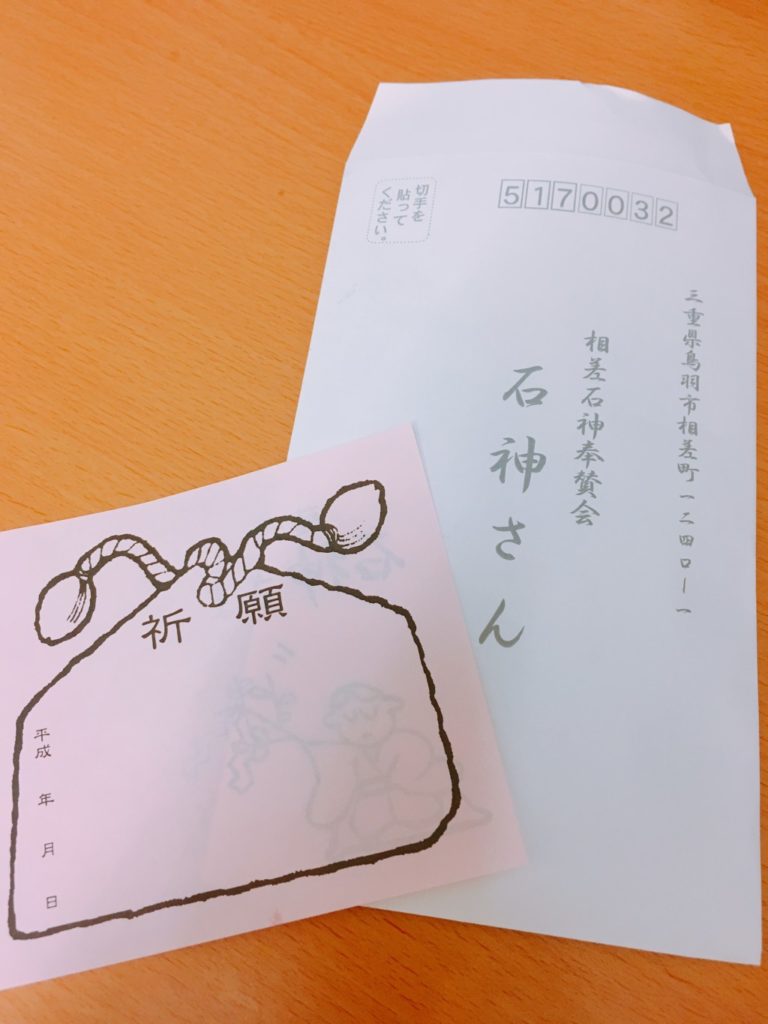 5170032
切手を
貼って
ください。
三重県鳥羽市相差町一二四〇ー一
相差石神奉賛会
石神さん
祈願
平成 年 月 日